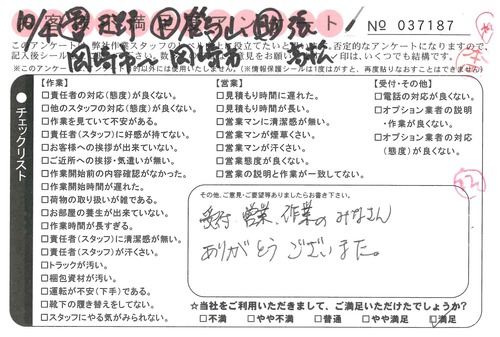 № 037187
このアンケートは、弊社作業スタッフの
否定的なアンケートになりますので、
記入後シール
印は、いくつでも結構です。
(※このアンケート
時以外には使用いたしません。(※情報保護シールは1度はがすと、再度貼りなおすことはできません)
チェックリスト
【作業】
□責任者の対応(態度)が良くない。
□他のスタッフの対応(態度)が良くない。
□作業を見ていて不安がある。
□責任者(スタッフ)に好感が持てない。
□お客様への挨拶が出来ていない。
□ご近所への挨拶・気遣いが無い。
□作業開始前の内容確認がなかった。
□作業開始時間が遅れた。
□荷物の取り扱いが雑である。
□お部屋の養生が出来ていない。
□作業時間が長すぎる。
□責任者(スタッフ)に清潔感が無い。
□責任者(スタッフ)が汗くさい。
□トラックが汚い。
□梱包資材が汚い。
□運転が不安(下手)である。
□靴下の履き替えをしてない。
□スタッフにやる気がみられない。
【営業】
□見積もり時間に遅れた。
□見積もり時間が長い。
□営業マンに清潔感が無い。
□営業マンが煙草くさい。
□営業マンが汗くさい。
□営業態度が良くない。
□営業の説明と作業が一致してない。
【受付・その他】
□電話の対応が良くない。
□オプション業者の説明・作業が良くない。
□オプション業者の対応(態度)が良くない。
その他、ご意見・ご要望等ありましたらお書き下さい。
受付 営業、作業のみなさん
ありがとうございました。
☆当社をご利用いただきまして、ご満足いただけたでしょうか?
□不満 □やや不満 □普通 □やや満足 □満足